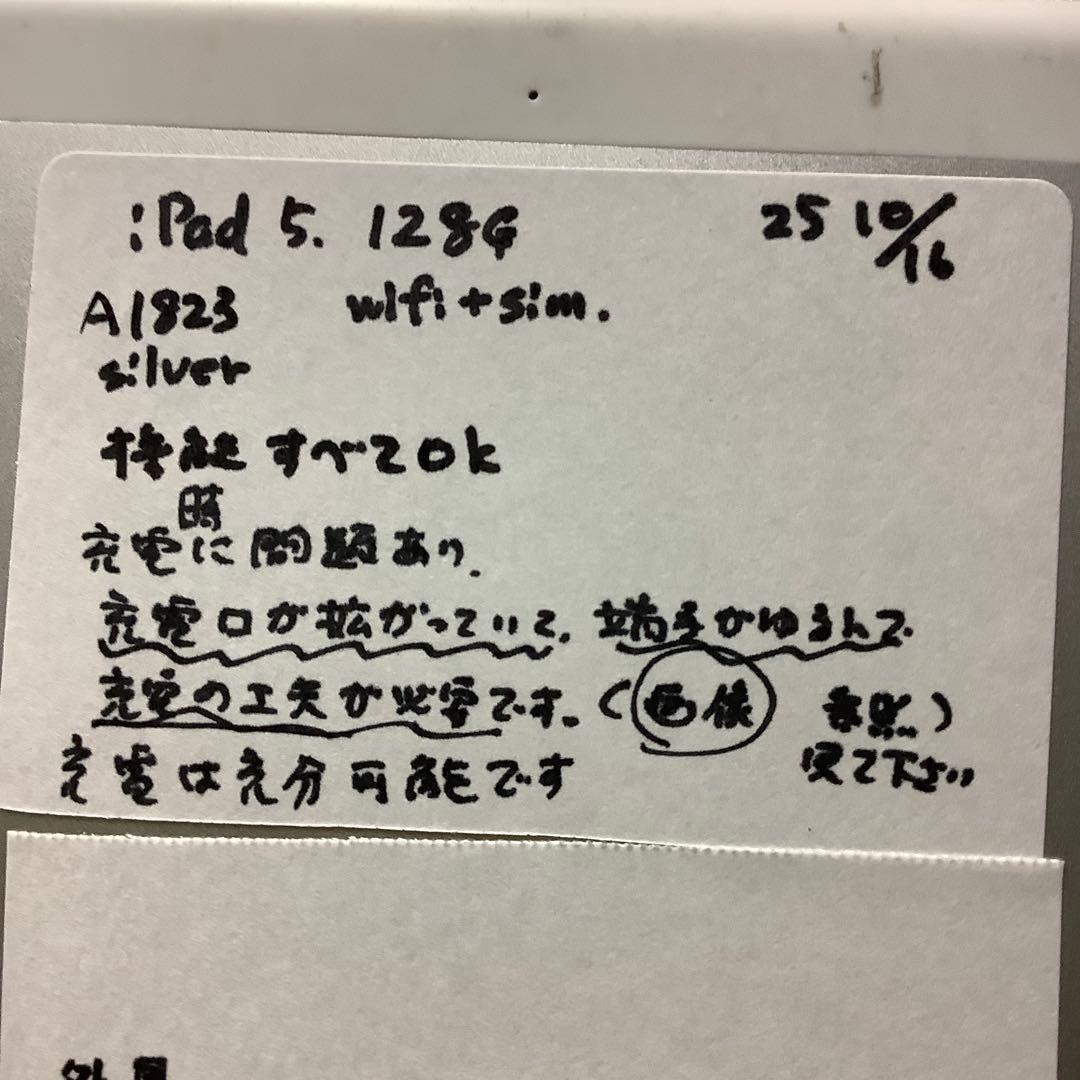 iPad 5. 128G 25 10/16
A1823 wifi+sim.
silver
機能すべてok
充電時に問題あり.
充電口が拡がっていて、端子がゆるんで
充電の工夫が必要です。(画像 参照)
充電は充分可能です 見て下さい
外